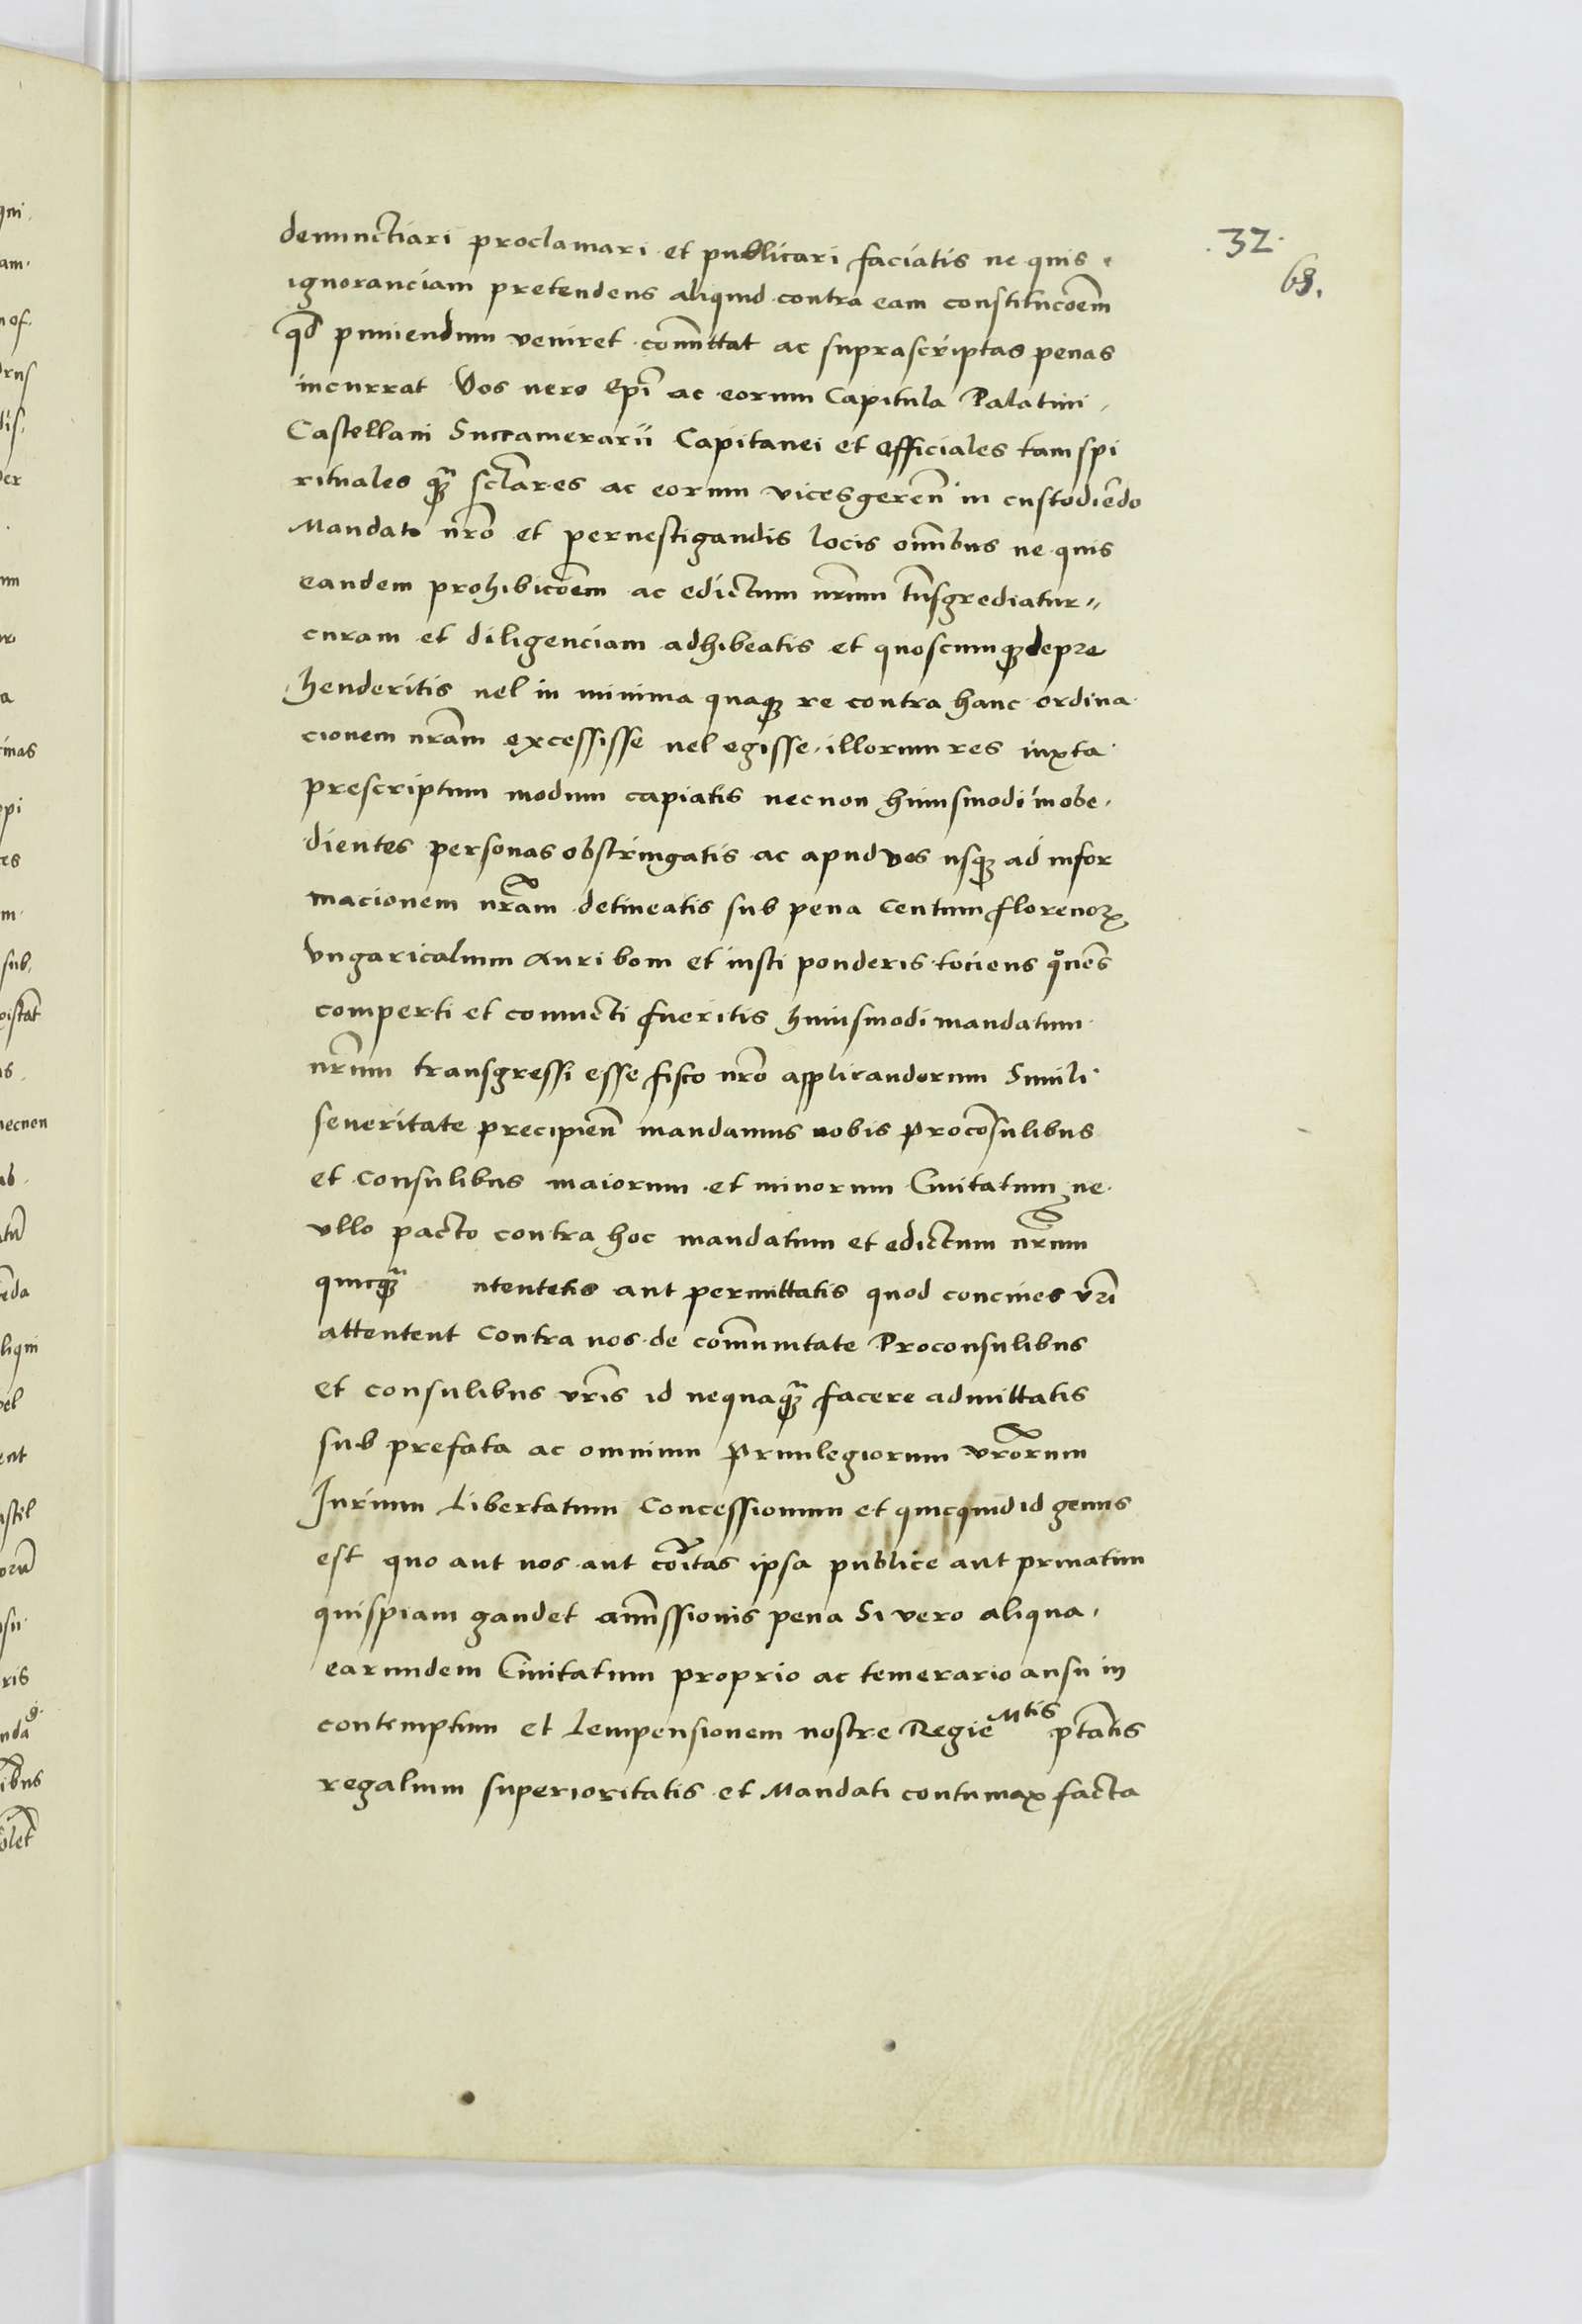 .32.
68.
denunctiari proclamari et publicari faciatis ne quis
ignoranciam pretendens aliquid contra eam constitucōem
qd̄ puniendum veniret com̄ittat ac suprascriptas penas
incurrat Vos uero Ep̄i ac eorum Capitula Palatini
Castellani Succamerarii Capitanei et Officiales tam spi
rituales qꝫ̄ sc̄lares ac eorum vicesgeren̄ in custodiēdo
Mandato nr̄o et peruestigandis locis om̄ibus ne quis
eandem prohibicōem ac edictum nr̄um tn̄sgrediatur
curam et diligenciam adhibeatis et quoscumqꝫ depre
henderitis uel in minima quaqꝫ re contra hanc ordina
cionem nr̄am excessisse uel egisse illorum res iuxta
prescriptum modum capiatis necnon huiusmodi inobe
dientes personas obstringatis ac apud vos usqꝫ ad infor
macionem nr̄am detineatis sub pena Centum florenoꝝ
Vngaricalium Auri boni et iusti ponderis tociens qͦciēs
comperti et conuicti fueritis huiusmodi mandatum
nr̄um transgressi esse fisco nr̄o applicandorum Simili
seueritate precipien̄ mandamus uobis Procōsulibus
et Consulibus maiorum et minorum Ciuitatum ne
vllo pacto contra hoc mandatum et edictum nr̄um
quicqꝫ̄ ntentetis aut permittatis quod conciues vr̄i
attentent Contra uos de com̄unitate Proconsulibus
et Consulibus vr̄is id nequaqꝫ̄ facere admittatis
sub prefata ac omnium Priuilegiorum vr̄orum
Iurium Libertatum Concessionum et quicquid id genus
est quo aut uos aut cōitas ipsa publice aut priuatim
quispiam gaudet am̄issionis pena Si vero aliqua
earundem Ciuitatum proprio ac temerario ausu in
contemptum et lempensionem nostre Regie Mtis ptātis
regalium superioritatis et Mandati contumax facta